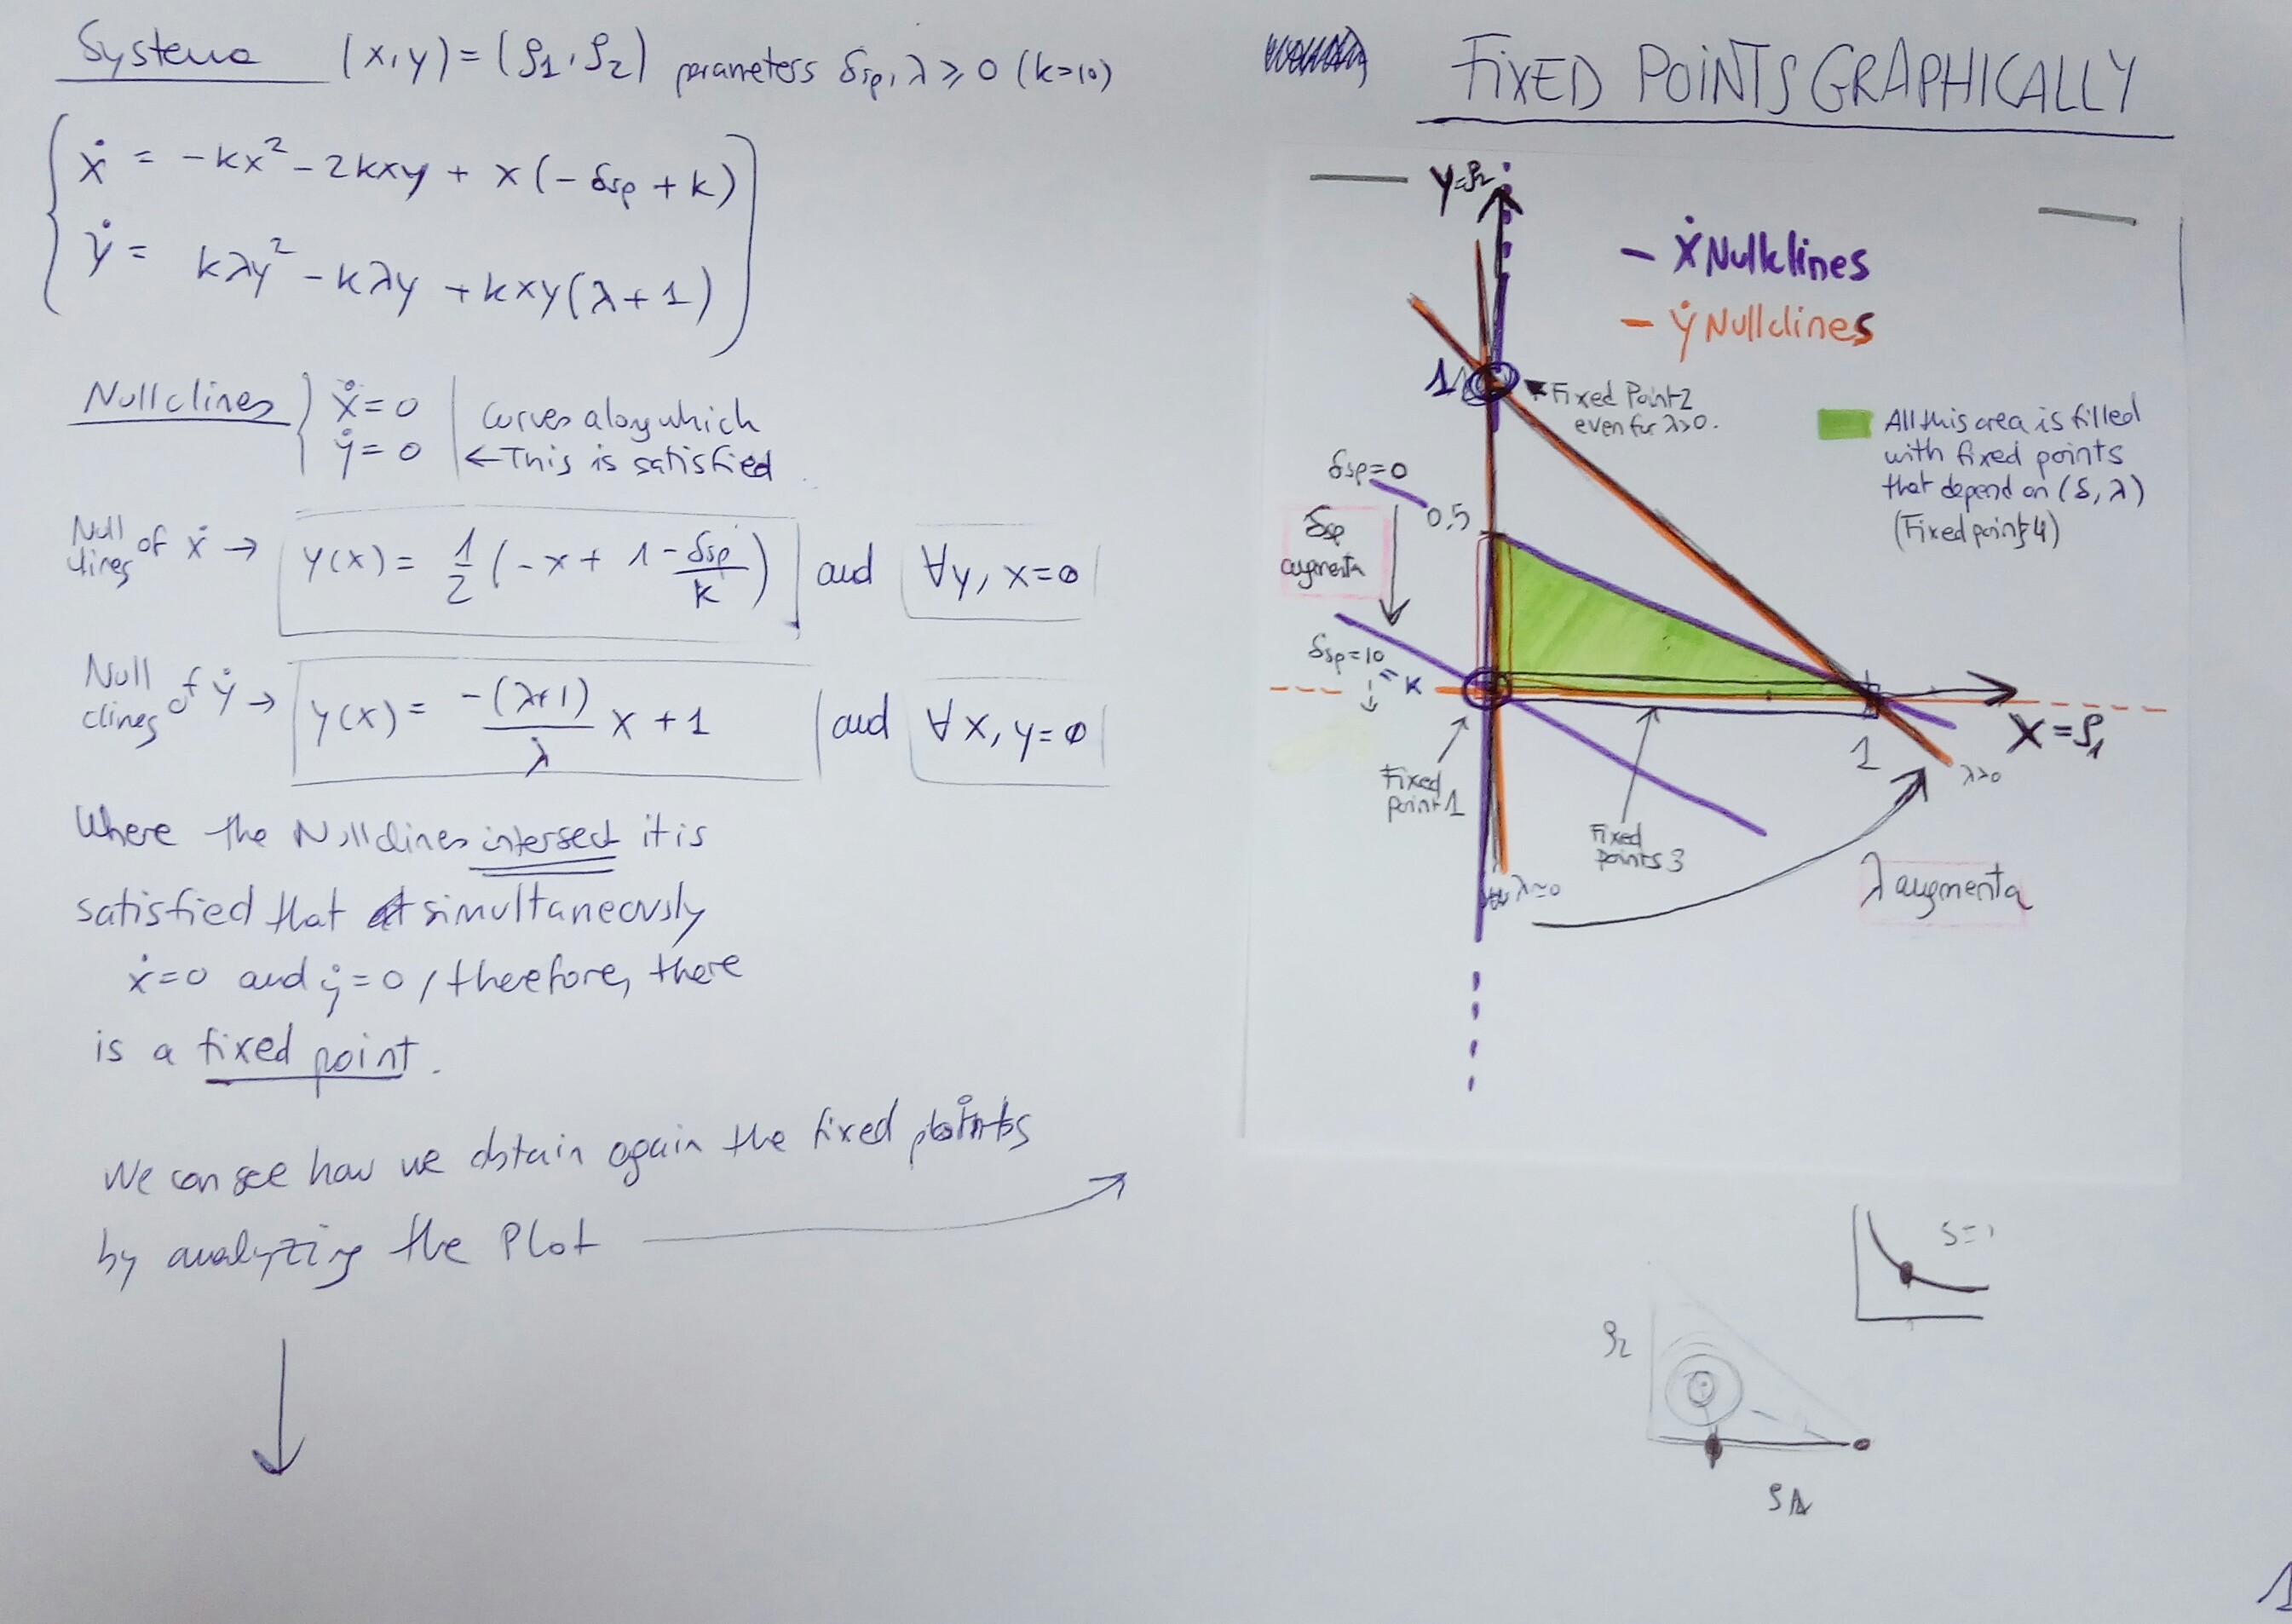 Systema (x,y)=(ρ1,ρ2) parameters δsp, λ ⩾ 0 (k=10)
ẋ = -kx² - 2kxy + x(-δsp + k)
ẏ = kλy² - kλy + kxy(λ+1)
Nullclines { ẋ=0 | curves along which
ẏ=0 | ← This is satisfied
Null clines of ẋ → y(x) = 1/2 (-x + 1 - δsp/k) and ∀y, x=0
Null clines of ẏ → y(x) = -(λ+1)/λ x + 1 and ∀x, y=0
Where the Nullclines intersect it is
satisfied that simultaneously
ẋ=0 and ẏ=0, therefore, there
is a fixed point.
We can see how we obtain again the fixed points
by analyzing the Plot
FIXED POINTS GRAPHICALLY
y=ρ2
- ẋ Nullclines
- ẏ Nullclines
1
Fixed Point 2
even for λ>0.
All this area is filled
with fixed points
that depend on (δ,λ)
(Fixed point 4)
δsp=0
0.5
δsp
augmenta
δsp=10
= K
X=ρ1
1
λ>0
Fixed
point 1
Fixed
points 3
λ=0
λ augmenta
S=1
ρ2
ρ1
1